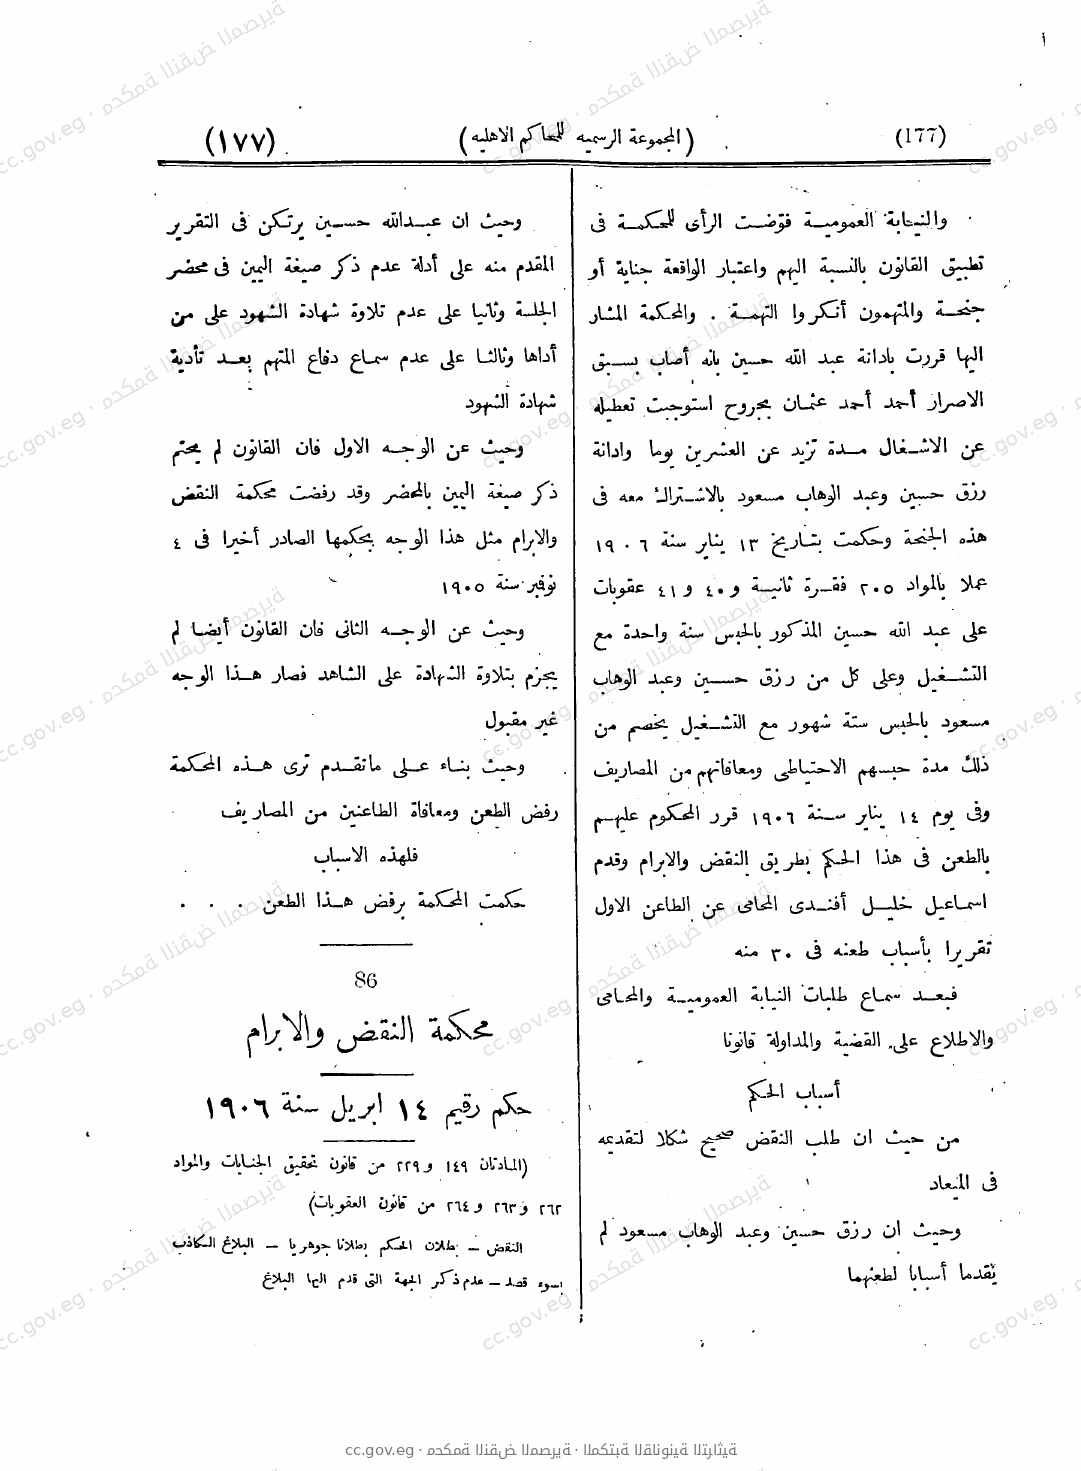 (177) (المجموعة الرسميه للمحاكم الاهليه) (١٧٧)
والنيابة العموميـة فوّضـت الرأى للمحكمـة فى
تطبيق القانون بالنسبة اليهم واعتبار الواقعة جناية أو
جنحـة والمتهمون أنكروا التهمـة . والمحكمة المشار
اليها قررت بادانة عبد الله حسين بانه أصاب بسـبق
الاصرار أحمد أحمد عثمان بجروح استوجبت تعطيله
عن الاشـغال مـدة تزيد عن العشرين يوما وادانة
رزق حسين وعبد الوهاب مسعود بالاشـتراك معه فى
هذه الجنحة وحكمت بتاريخ ١٣ يناير سنة ١٩٠٦
عملا بالمواد ٢٠٥ فقـرة ثانيـة و ٤٠ و ٤١ عقوبات
على عبد الله حسين المذكور بالحبس سنة واحدة مع
التشـغيل وعلى كل من رزق حسـين وعبد الوهاب
مسعود بالحبس ستة شهور مع التشـغيل يخصم من
ذلك مدة حبسهم الاحتياطى ومعافاتهم من المصاريف
وفى يوم ١٤ يناير سـنة ١٩٠٦ قرر المحكوم عليهـم
بالطعن فى هذا الحكم بطريق النقض والابرام وقدم
اسماعيل خليـل أفنـدى المحامى عن الطاعن الاول
تقريرا بأسباب طعنه فى ٣٠ منه
فبعـد سماع طلبات النيابة العموميـة والمحامى
والاطلاع على القضية والمداولة قانونا
أسباب الحكم
من حيث ان طلب النقض صحيح شكلا لتقديمه
فى الميعاد
وحيث ان رزق حسين وعبد الوهاب مسعود لم
يقدما أسبابا لطعنهما
وحيث ان عبـدالله حسـين يرتكن فى التقرير
المقدم منه على أدلة عدم ذكر صيغة اليمين فى محضر
الجلسة وثانيا على عدم تلاوة شهادة الشهود على من
أداها وثالثـا على عدم سماع دفاع المتهم بعـد تأدية
شهادة الشهود
وحيث عن الوجـه الاول فان القانون لم يحتم
ذكر صيغة اليمين بالمحضر وقد رفضت محكمة النقض
والابرام مثل هذا الوجه بحكمها الصادر أخيرا فى ٤
نوفبر سنة ١٩٠٥
وحيث عن الوجـه الثانى فان القانون أيضـا لم
يجزم بتلاوة الشهادة على الشاهد فصار هـذا الوجه
غير مقبول
وحيث بنـاء عـلى ماتقـدم ترى هـذه المحكمة
رفض الطعن ومعافاة الطاعنين من المصاريف
فلهذه الاسباب
حكمت المحكمة برفض هـذا الطعن . . .
86
محكمة النقض والابرام
حكم رقيم ١٤ ابريل سنة ١٩٠٦
(المادتان ١٤٩ و ٢٢٩ من قانون تحقيق الجنايات والمواد
٢٦٢ و ٢٦٣ و ٢٦٤ من قانون العقوبات)
النقض – بطلان الحكم بطلانا جوهريا – البلاغ الكاذب
بسوء قصد – عدم ذكر الجهة التى قدم اليها البلاغ
cc.gov.eg · محكمة النقض المصرية · المكتبة القانونية التراثية